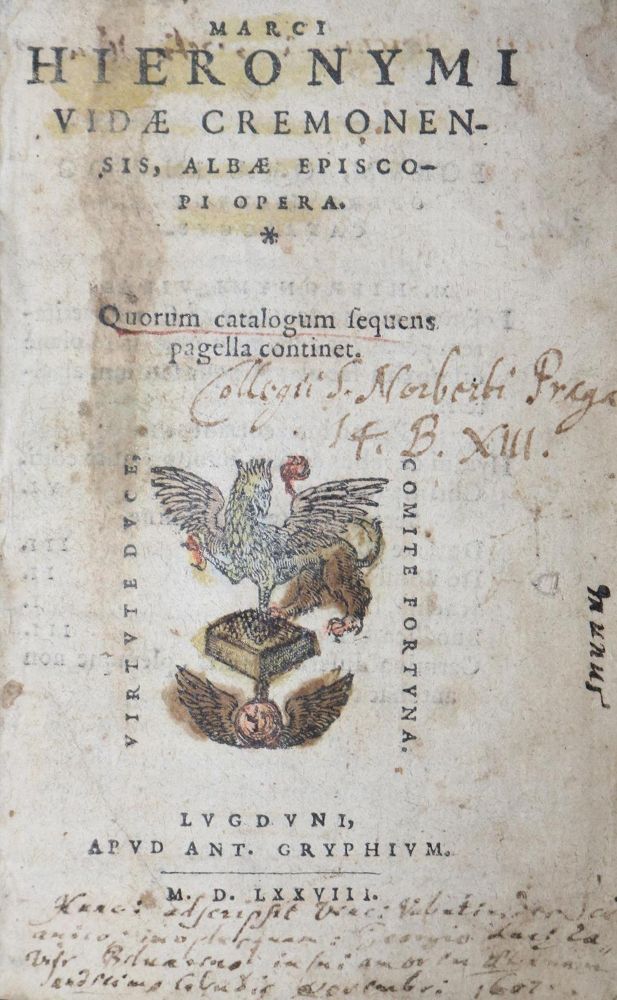 MARCI
HIERONYMI
VIDÆ CREMONEN-
SIS, ALBÆ EPISCO-
PI OPERA.
*
Quorum catalogum sequens
pagella continet.
Collegii S. Norberti Pragæ
14. B. XIII.
VIRTVTE DVCE,
COMITE FORTVNA.
munus
LVGDVNI,
APVD ANT. GRYPHIVM.
M. D. LXXVIII.
adscripsit
amico Georgio
in sui amorem
Calendis Novembri 1602